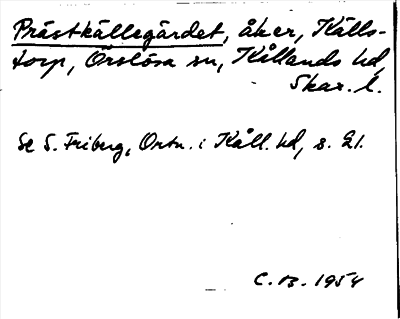 Prästkällegärdet, åker, Källs-
torp, Örslösa sn, Kållands hd,
Skar. l.
Se S. Friberg, Ortn. i Kåll. hd, s. 21.
C. B. 1954